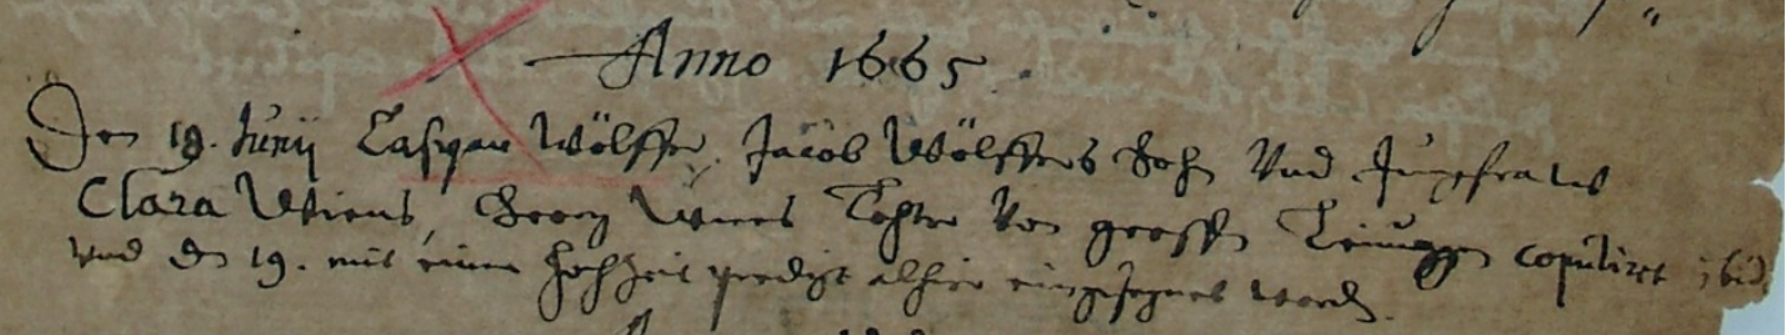 Anno 1665
Den 19. Junij Caspar Wölffer, Jacob Wölffers Sohn Vnd Jungfraw
Clara Georg Tochter Von grossen copuliret ibid
Vnd den 19. mit einer Hochzeit predigt alhier eingesegnet worden.